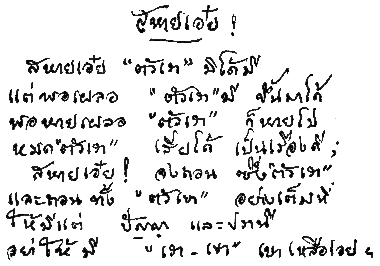 สหายเอ๋ย !
สหายเอ๋ย "ตัวเรา" มิได้มี
แต่พอเผลอ "ตัวเรา" มี ขึ้นมาได้
พอหายเผลอ "ตัวเรา" ก็หายไป
หมด "ตัวเรา" เสียได้ เป็นเรื่องดี ;
สหายเอ๋ย ! จงถอน ซึ่ง "ตัวเรา"
และถอน ทั้ง "ตัวเขา" อย่างเต็มที่
ให้มีแต่ ปัญญา และ ปรานี
อย่าให้ มี "เรา - เขา" เบาเหลือเอย ฯ